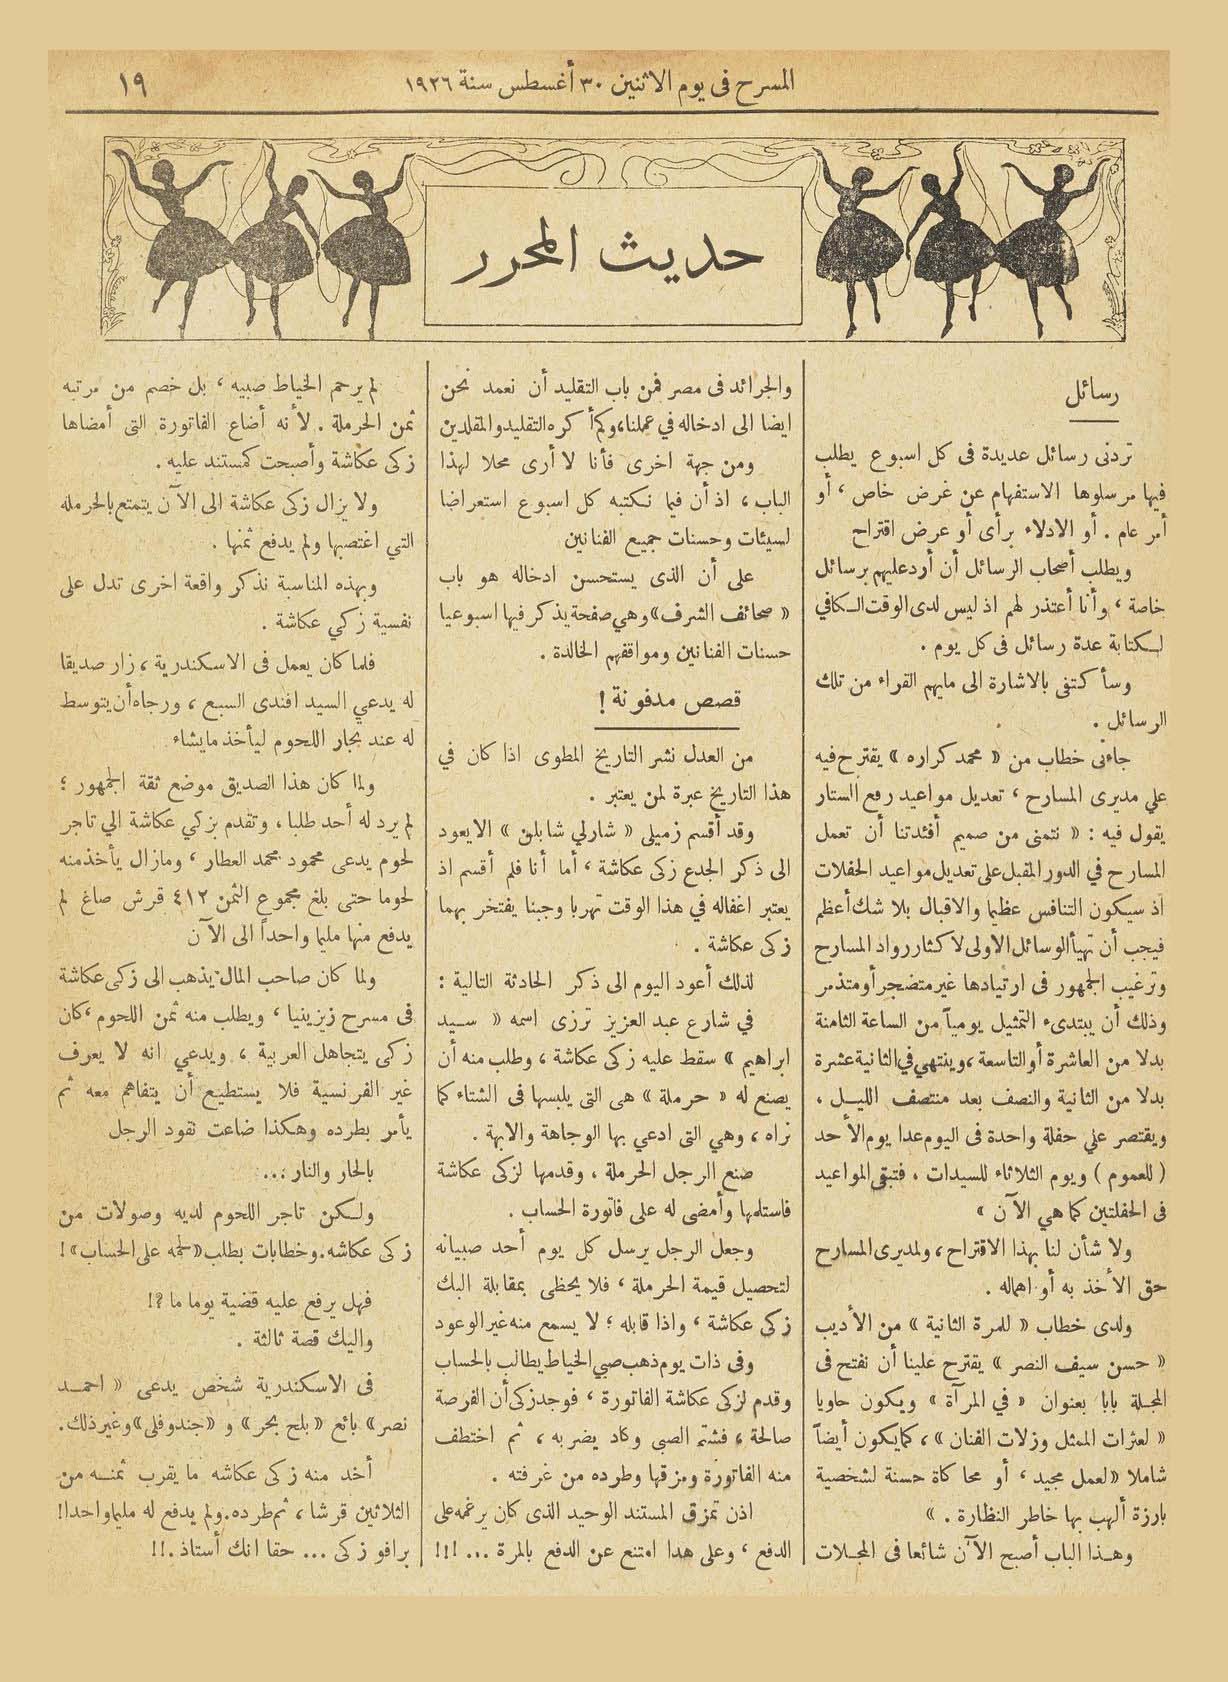 المسرح فى يوم الاثنين ٣٠ أغسطس سنة ١٩٢٦
١٩
حديث المحرر
رسائل
تردنى رسائل عديدة فى كل اسبوع يطلب
فيها مرسلوها الاستفهام عن غرض خاص ، أو
أمر عام . أو الادلاء برأى أو عرض اقتراح
ويطلب أصحاب الرسائل أن أرد عليهم برسائل
خاصة ، وأنا أعتذر لهم اذ ليس لدى الوقت الكافي
لكتابة عدة رسائل فى كل يوم .
وسأكتفى بالاشارة الى مايهم القراء من تلك
الرسائل .
جاءنى خطاب من « محمد كراره » يقترح فيه
علي مديرى المسارح ، تعديل مواعيد رفع الستار
يقول فيه : « نتمنى من صميم أفئدتنا أن تعمل
المسارح في الدور المقبل على تعديل مواعيد الحفلات
اذ سيكون التنافس عظيما والاقبال بلا شك أعظم
فيجب أن تهيأ الوسائل الاولى لاكثار رواد المسارح
وترغيب الجمهور فى ارتيادها غير متضجر أو متذمر
وذلك أن يبتدىء التمثيل يومياً من الساعة الثامنة
بدلا من العاشرة أو التاسعة ، وينتهي في الثانية عشرة
بدلا من الثانية والنصف بعد منتصف الليل .
ويقتصر علي حفلة واحدة فى اليوم عدا يوم الأحد
( للعموم ) ويوم الثلاثاء للسيدات . فتبقى المواعيد
فى الحفلتين كما هي الآن »
ولا شأن لنا بهذا الاقتراح ، ولمديرى المسارح
حق الأخذ به أو اهماله .
ولدى خطاب « للمرة الثانية » من الأديب
« حسن سيف النصر » يقترح علينا أن نفتح فى
المجلة بابا بعنوان « في المرآة » ويكون حاويا
« لعثرات الممثل وزلات الفنان » ، كما يكون أيضاً
شاملا « لعمل مجيد ، أو محاكاة حسنة لشخصية
بارزة ألهب بها خاطر النظارة . »
وهذا الباب أصبح الآن شائعا فى المجلات
والجرائد فى مصر فمن باب التقليد أن نعمد نحن
ايضا الى ادخاله في عملنا ، وكم أكره التقليد والمقلدين
ومن جهة اخرى فأنا لا أرى محلا لهذا
الباب ، اذ أن فيما نكتبه كل اسبوع استعراضا
لسيئات وحسنات جميع الفنانين
على أن الذى يستحسن ادخاله هو باب
« صحائف الشرف » وهي صفحة يذكر فيها اسبوعيا
حسنات الفنانين ومواقفهم الخالدة .
قصص مدفونة !
من العدل نشر التاريخ المطوى اذا كان في
هذا التاريخ عبرة لمن يعتبر .
وقد أقسم زميلى « شارلي شابلن » الايعود
الى ذكر الجدع زكى عكاشة ، أما أنا فلم أقسم اذ
يعتبر اغفاله في هذا الوقت تهربا وجبنا يفتخر بهما
زكى عكاشة .
لذلك أعود اليوم الى ذكر الحادثة التالية :
في شارع عبد العزيز ترزى اسمه « سيد
ابراهيم » سقط عليه زكى عكاشة ، وطلب منه أن
يصنع له « حرملة » هى التى يلبسها فى الشتاء كما
نراه ، وهي التى ادعي بها الوجاهة والابهة .
صنع الرجل الحرملة ، وقدمها لزكى عكاشة
فاستلمها وأمضى له على فاتورة الحساب .
وجعل الرجل يرسل كل يوم أحد صبيانه
لتحصيل قيمة الحرملة ، فلا يحظى بمقابلة البك
زكى عكاشة ، واذا قابله ؛ لا يسمع منه غير الوعود
وفى ذات يوم ذهب صبي الخياط يطالب بالحساب
وقدم لزكى عكاشة الفاتورة ، فوجد زكى أن الفرصة
صالحة ، فشتم الصبى وكاد يضربه ، ثم اختطف
منه الفاتورة ومزقها وطرده من غرفته .
اذن تمزق المستند الوحيد الذى كان يرغمه على
الدفع ، وعلى هدا امتنع عن الدفع بالمرة ... !!!
لم يرحم الخياط صبيه ، بل خصم من مرتبه
ثمن الحرملة . لأنه أضاع الفاتورة التى أمضاها
زكى عكاشة وأصبحت كمستند عليه .
ولا يزال زكى عكاشة الى الآن يتمتع بالحرمله
التي اغتصبها ولم يدفع ثمنها .
وبهذه المناسبة نذكر واقعة اخرى تدل على
نفسية زكي عكاشة .
فلما كان يعمل فى الاسكندرية ، زار صديقا
له يدعي السيد افندى السبع ، ورجاه أن يتوسط
له عند تجار اللحوم ليأخذ مايشاء
ولما كان هذا الصديق موضع ثقة الجمهور ؛
لم يرد له أحد طلبا ، وتقدم بزكي عكاشة الي تاجر
لحوم يدعى محمود محمد العطار ، ومازال يأخذ منه
لحوما حتى بلغ مجموع الثمن ٤١٢ قرش صاغ لم
يدفع منها مليما واحداً الى الآن
ولما كان صاحب المال يذهب الى زكى عكاشة
فى مسرح زيزينيا ، ويطلب منه ثمن اللحوم ، كان
زكى يتجاهل العربية ، ويدعي انه لا يعرف
غير الفرنسية فلا يستطيع أن يتفاهم معه ثم
يأمر بطرده وهكذا ضاعت نقود الرجل
بالحار والنار ...
ولكن تاجر اللحوم لديه وصولات من
زكى عكاشه . وخطابات بطلب « لحمه على الحساب » !
فهل يرفع عليه قضية يوما ما ؟!
واليك قصة ثالثة .
فى الاسكندرية شخص يدعى « احمد
نصر » بائع « بلح بحر » و « جندوفلي » وغير ذلك .
أخد منه زكى عكاشه ما يقرب ثمنه من
الثلاثين قرشا ، ثم طرده . ولم يدفع له مليما واحدا !
برافو زكى ... حقا انك أستاذ .!!